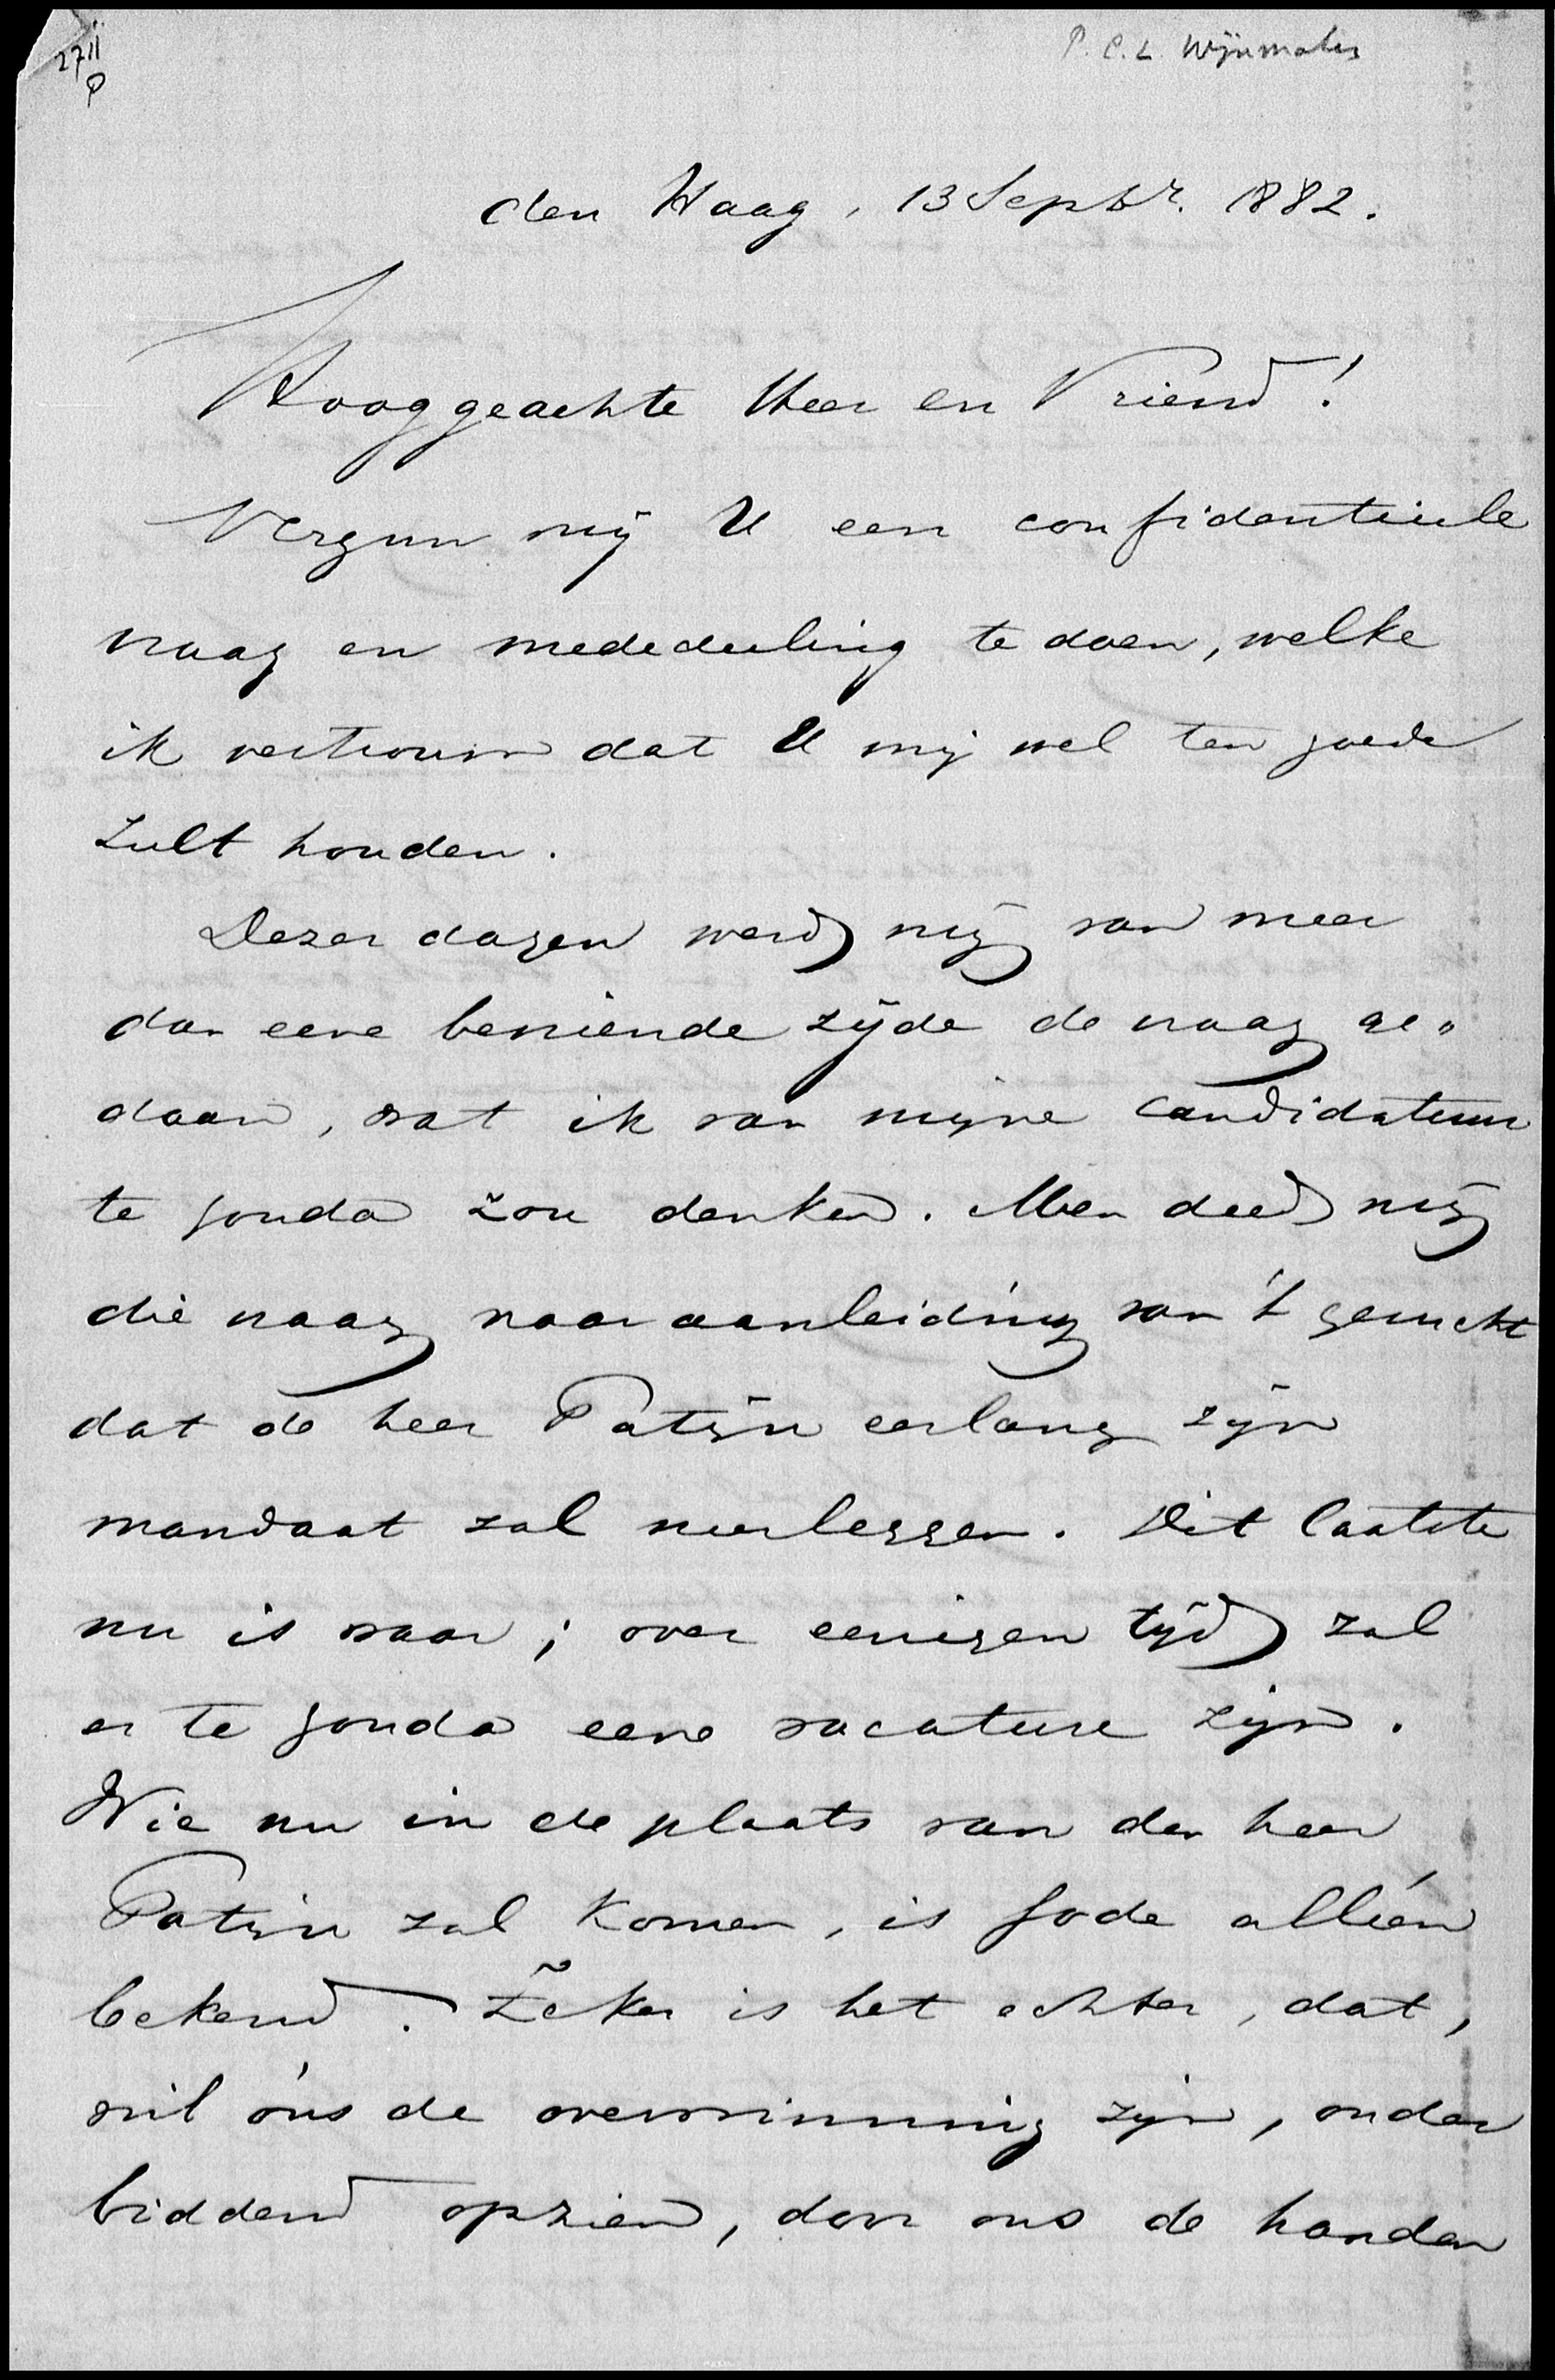 2711
P
P.C.L. Wijnmalen
den Haag, 13 Septbr. 1882.
Hooggeachte Heer en Vriend!
Vergun mij U een confidentieele
vraag en mededeeling te doen, welke
ik vertrouw dat U mij wel ten goede
zult houden.
Dezer dagen werd mij van meer
dan eene bevriende zijde de vraag ge„
daan, wat ik van mijne candidatuur
te Gouda zou denken. Men deed mij
die vraag naar aanleiding van 't gerucht
dat de heer Patijn eerlang zijn
mandaat zal neerleggen. Dit laatste
nu is waar; over eenigen tijd zal
er te Gouda eene vacature zijn.
Wie nu in de plaats van den heer
Patijn zal komen, is Gode alléén
bekend. Zeker is het echter, dat,
wil óns de overwinning zijn, onder
biddend opzien, door ons de handen